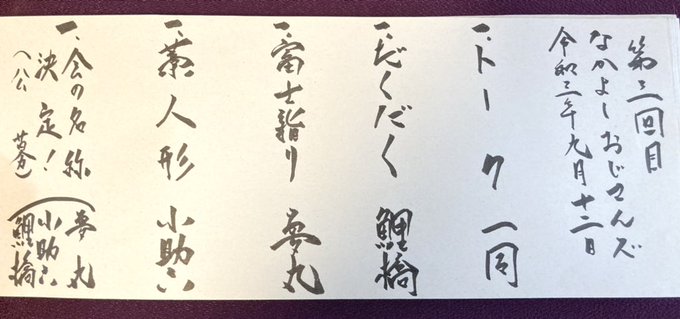 第三回目
なかよしおじさんズ
令和三年九月十二日
一、トーク 一同
一、だくだく 鯉橋
一、富士詣り 夢丸
一、藁人形 小助六
一、会の名称
決定!
(公募)
夢丸
小助六
鯉橋